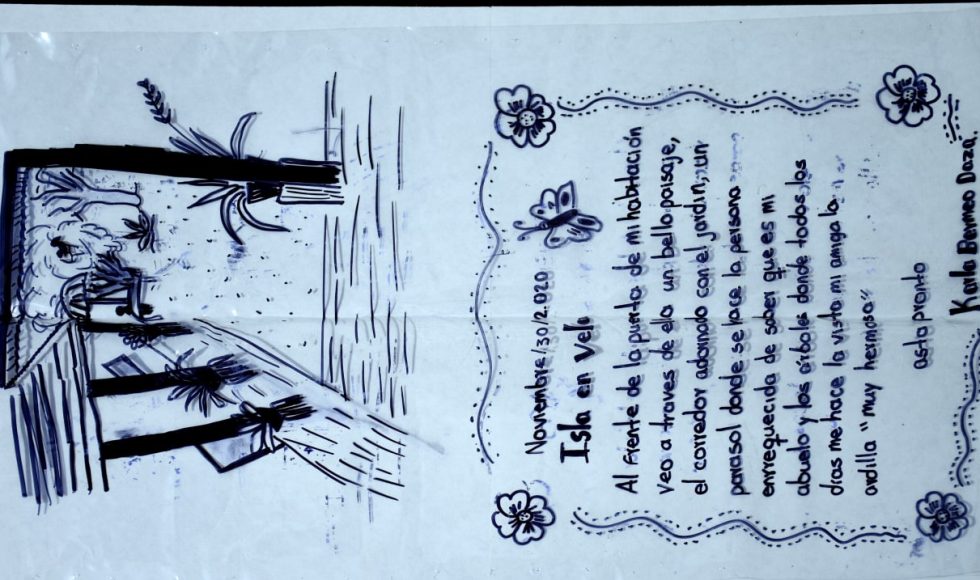 Noviembre/30/2020
Isla en Vela
Al frente de la puerta de mi habitación
veo a traves de ella un bello paisaje,
el corredor adornado con el jardin, un
parasol donde se lace la persona
enrrequecida de saber que es mi
abuelo y los árboles donde todos los
dias me hace la visita mi amiga la
ardilla "muy hermosa"
asta pronto
Karla Daza